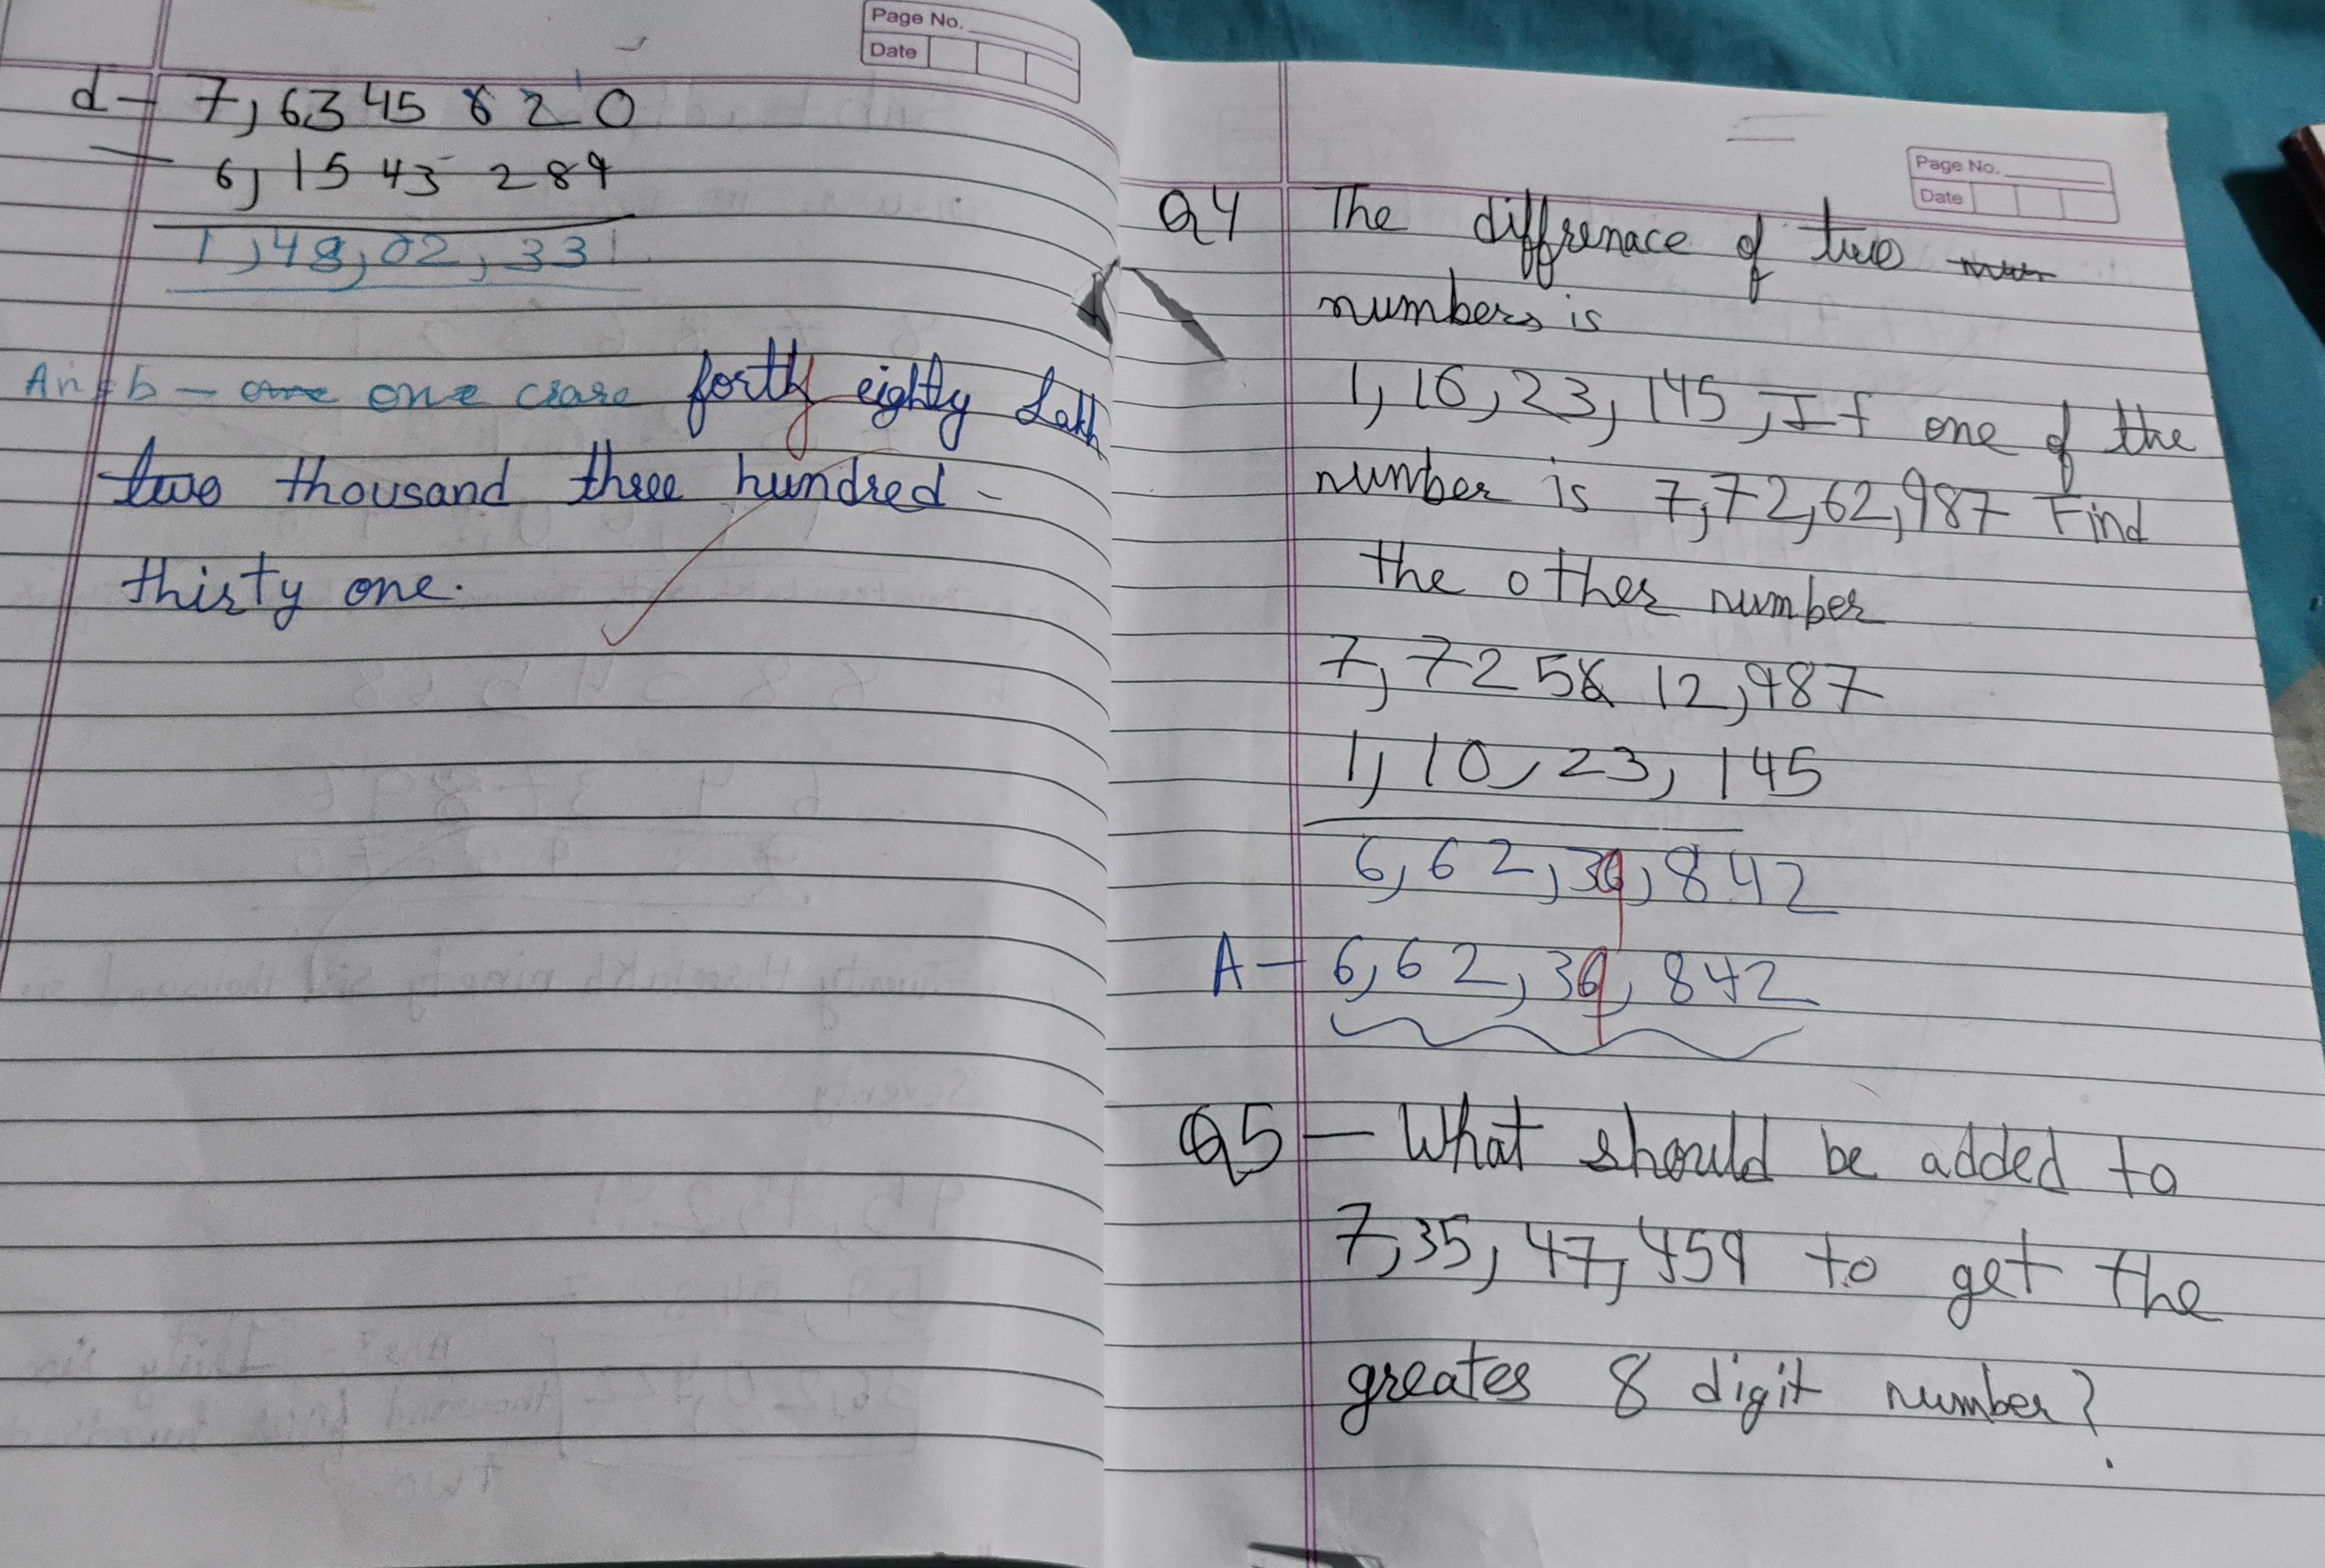 Page No.
Date
d - 7,6345 620
- 6,1543 289
1,48,02,331
Ans b - one one crore forty eighty Lakh
two thousand three hundred -
thirty one.
Page No.
Date
Q4 The diffrenace of two
numbers is
1,16,23,145, If one of the
number is 7,72,62,987 Find
the other number
7,72 56 12,987
1,10,23,145
6,62,39,842
A - 6,62,39,842
Q5 - What should be added to
7,35,47,459 to get the
greates 8 digit number?